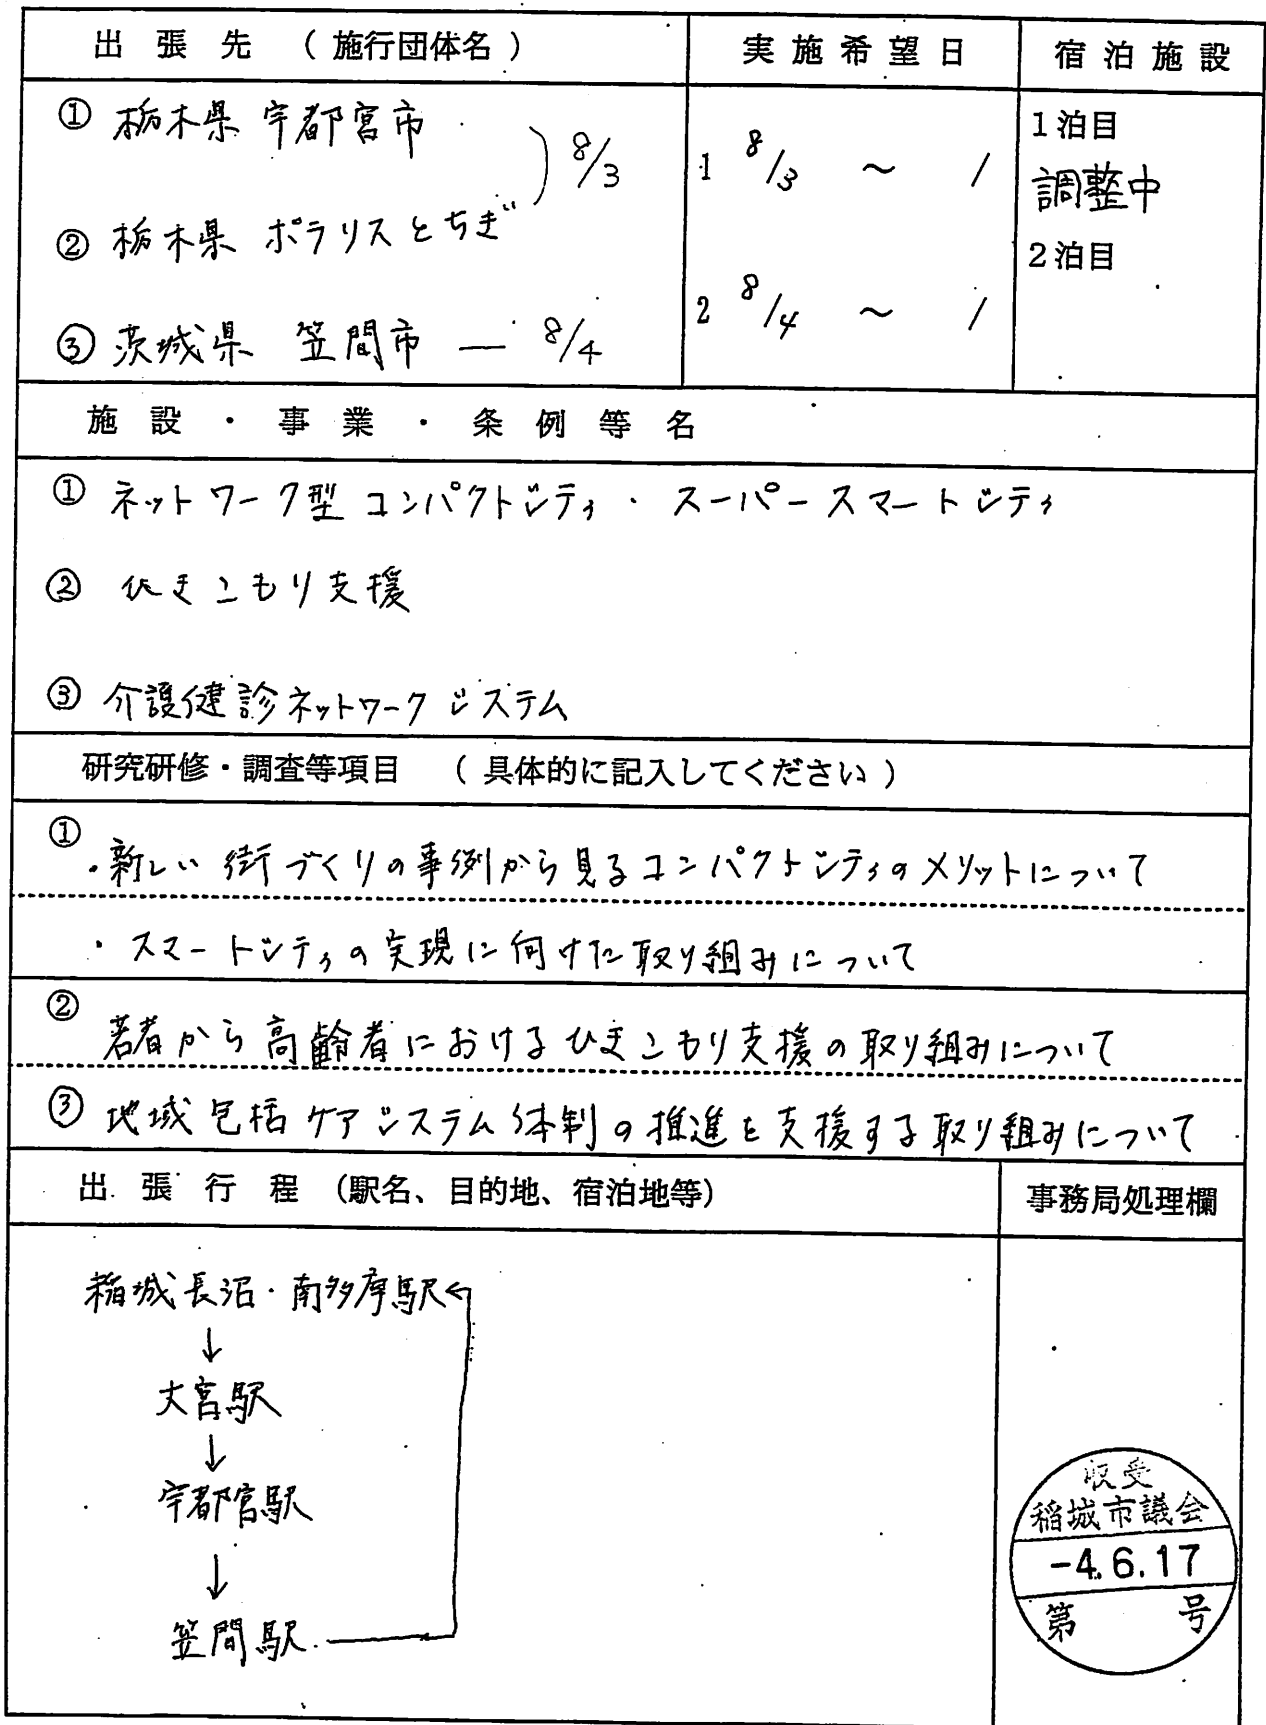 出張先 （施行団体名） 実施希望日 宿泊施設
① 栃木県 宇都宮市
② 栃木県 ポラリスとちぎ
) 8/3
③ 茨城県 笠間市 — 8/4
1 8/3 ～ /
2 8/4 ～ /
1泊目
調整中
2泊目
施設・事業・条例等名
① ネットワーク型コンパクトシティ・スーパースマートシティ
② ひきこもり支援
③ 介護健診ネットワークシステム
研究研修・調査等項目 （具体的に記入してください）
① ・新しい街づくりの事例から見るコンパクトシティのメリットについて
・スマートシティの実現に向けた取り組みについて
② 若者から高齢者におけるひきこもり支援の取り組みについて
③ 地域包括ケアシステム体制の推進を支援する取り組みについて
出張行程 （駅名、目的地、宿泊地等） 事務局処理欄
稲城長沼・南多摩駅←
↓
大宮駅
↓
宇都宮駅
↓
笠間駅
収受
稲城市議会
-4.6.17
第 号